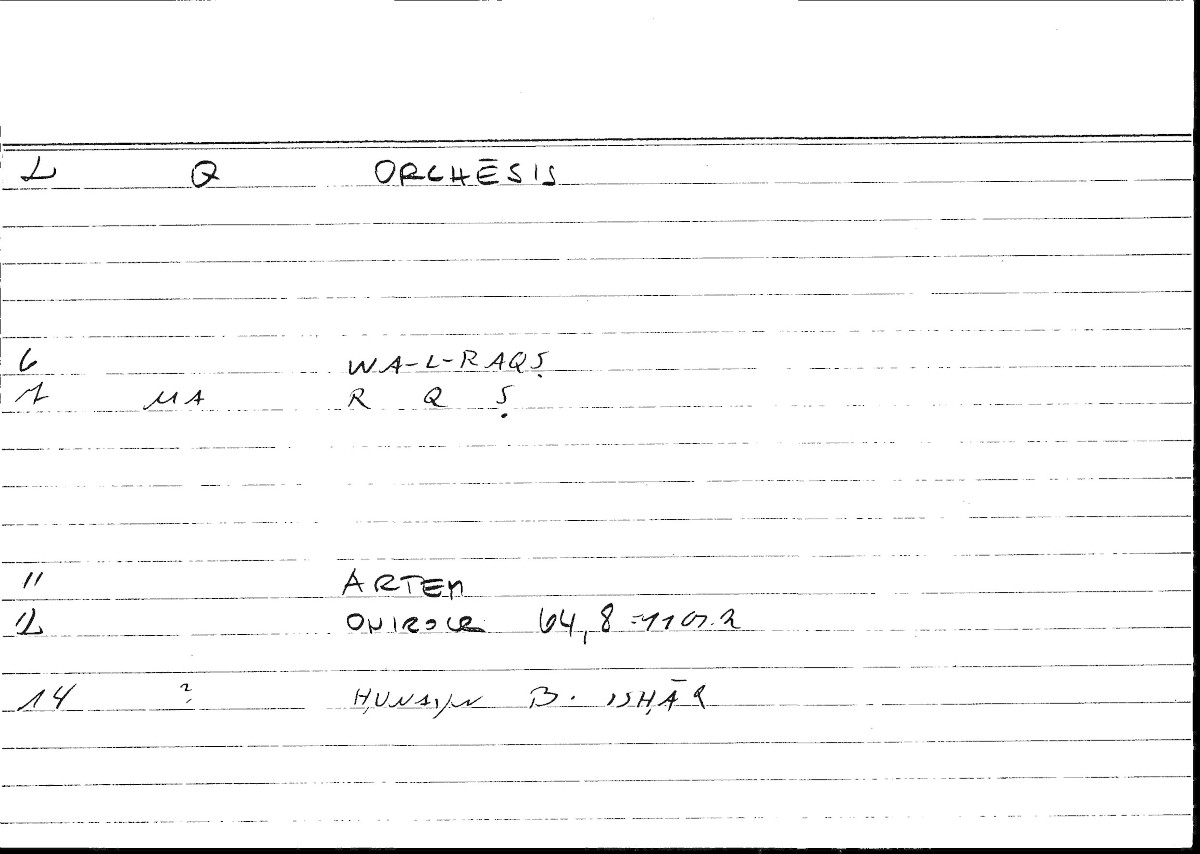 2 Q ORCHĒSIS
6 WA-L-RAQṢ
7 MA R Q Ṣ
11 ARTEM
12 ONIROCR 64,8 =
14 ? ḤUNAYN B. ISḤĀQ